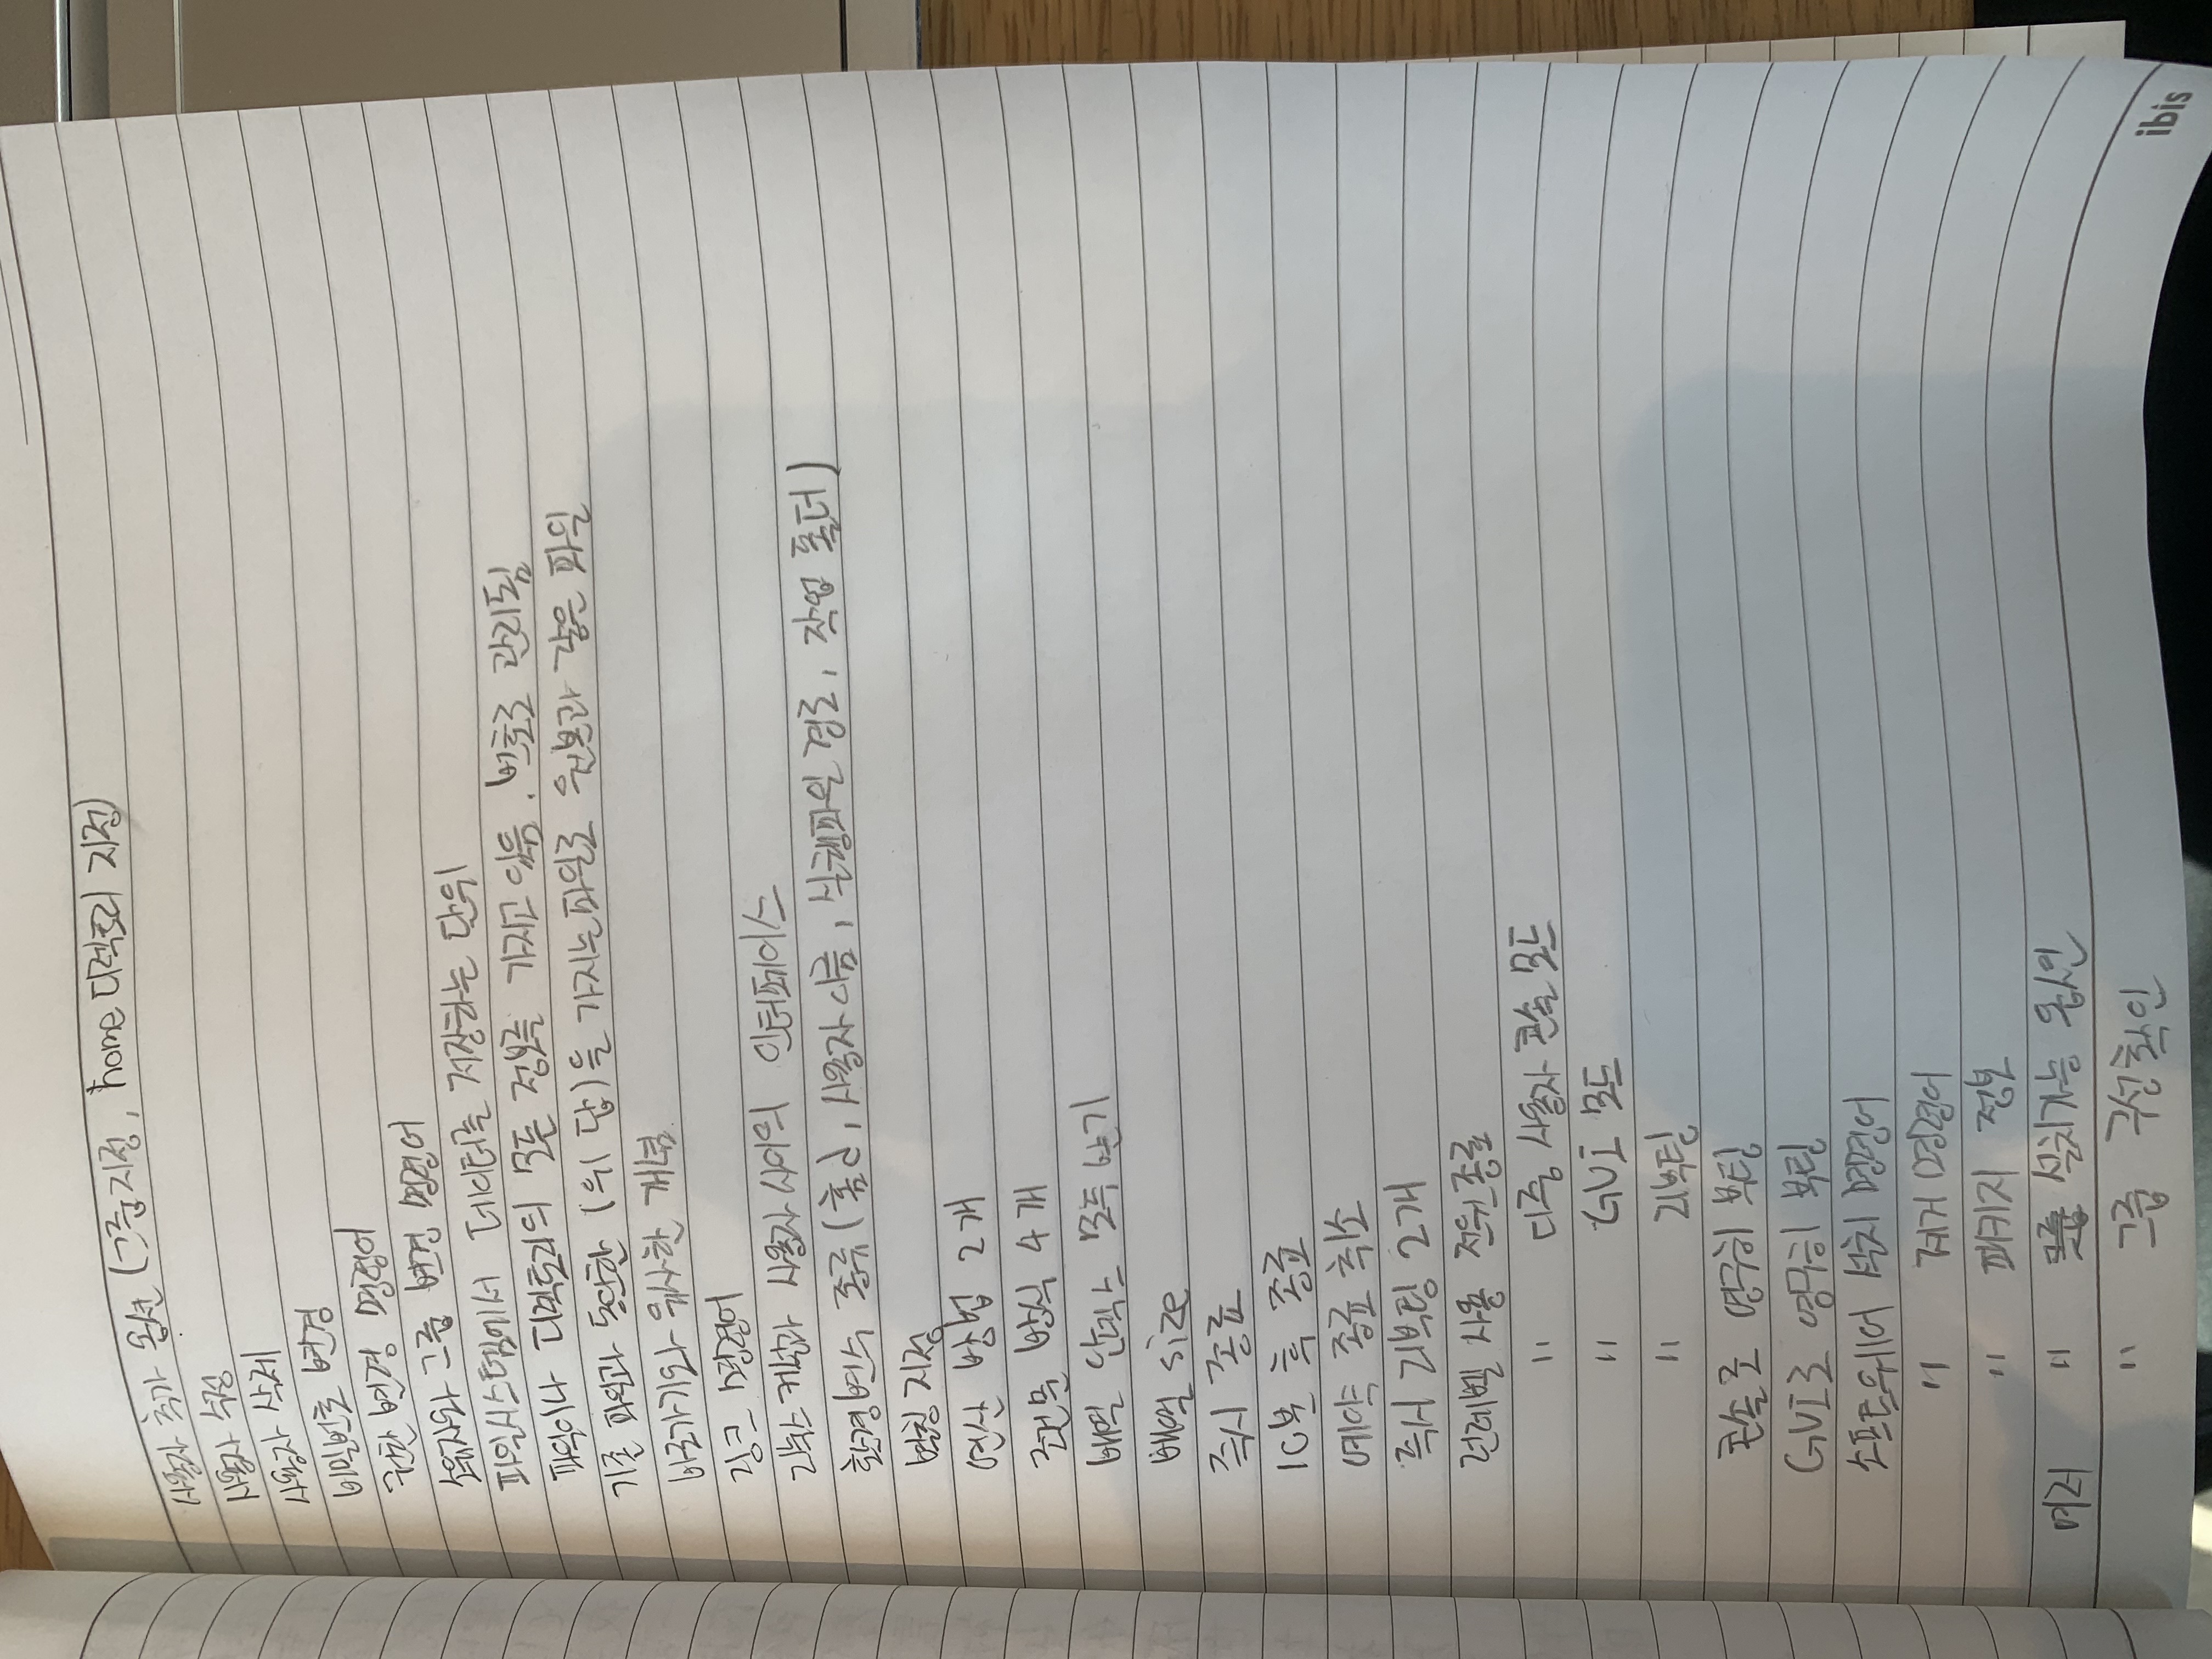 사용자 추가 옵션 (그룹지정, home 디렉토리 지정)
사용자 수정
사용자 삭제
비밀번호 변경
권한 변경 명령어
소유자와 그룹 변경 명령어
파일시스템에서 데이터를 저장하는 단위
파일이나 디렉토리의 모든 정보를 가지고 있음. 번호로 관리됨
기존 파일과 동일한 (위 답)을 가지는 파일로 원본과 같은 파일
바로가기와 유사한 개념
링크 명령어
리눅스 커널과 사용자 사이의 인터페이스
환경변수 종류 (홈 d, 사용자 이름, 실행파일 경로, 작업 폴더)
별칭 지정
연산 방법 2개
조건문 방식 4개
배열 인덱스 모두 받기
배열 size
즉시 종료
10분 후 종료
예약 종료 취소
즉시 리부팅 2개
런레벨 사용 전원종료
" 다중 사용자 콘솔 모드
" GUI 모드
" 리부팅
콘솔로 영구히 부팅
GUI로 영구히 부팅
소프트웨어 설치 명령어
" 제거 명령어
" 패키지 정보
여러 " 설치가능 옵션
" 그룹 구성확인
ibis